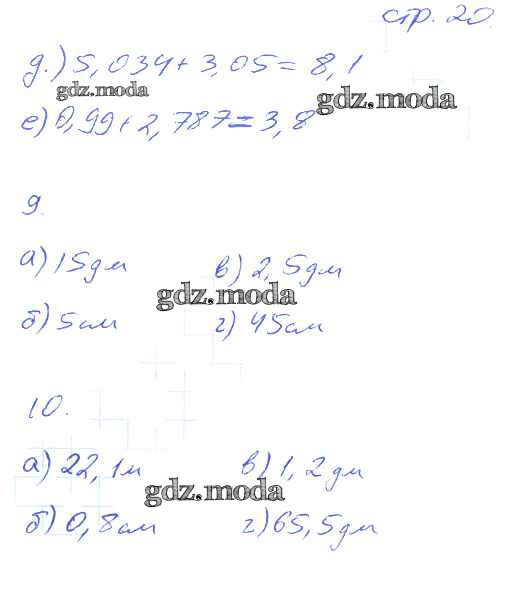 стр. 20.
д.) 5,034 + 3,05 = 8,1
gdz.moda
gdz.moda
е) 0,99 + 2,787 = 3,8
9.
а) 15 дм в) 2,5 дм
gdz.moda
б) 5 см г) 45 см
10.
а) 22,1 м в) 1,2 дм
gdz.moda
б) 0,8 см г) 65,5 дм